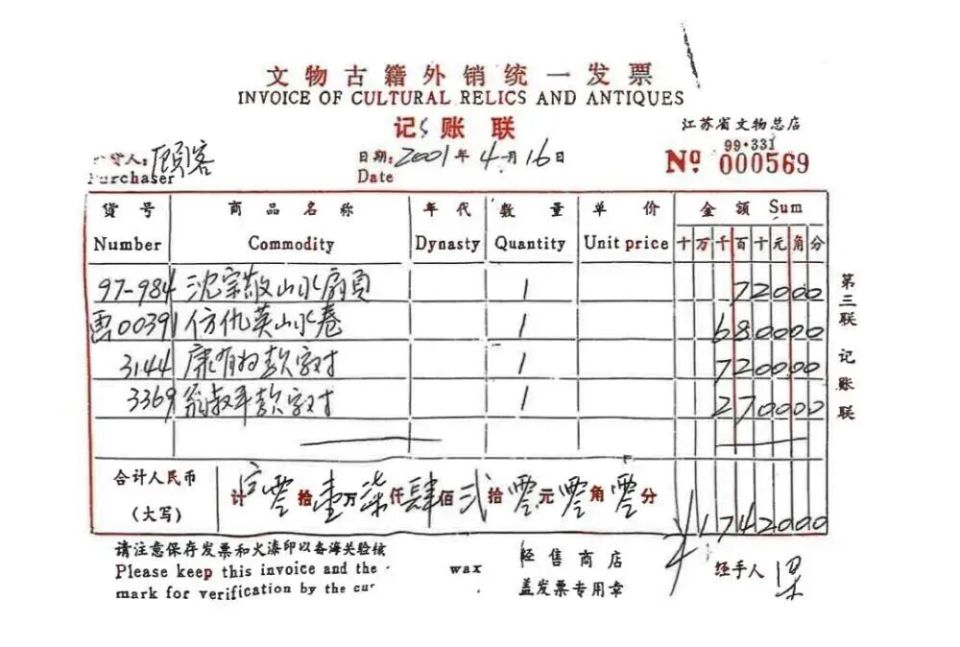 文物古籍外销统一发票
INVOICE OF CULTURAL RELICS AND ANTIQUES
记账联
江苏省文物总店
99·331
Nº 000569
货人:顾客
Purchaser
日期:2001年4月16日
Date
货号 商品名称 年代 数量 单价 金额 Sum
Number Commodity Dynasty Quantity Unit price 十万千百十元角分
97-984 沈宗敬山水扇页 1 72000
00391 仿仇英山水卷 1 680000
3144 康有为款字对 1 720000
3369 翁叔平款字对 1 270000
合计人民币
(大写)
计 零拾壹万柒仟肆佰贰拾零元零角零分
¥1742000
第三联 记账联
请注意保存发票和火漆印以备海关验核
Please keep this invoice and the wax
mark for verification by the cu
经售商店
盖发票专用章
经手人 梁